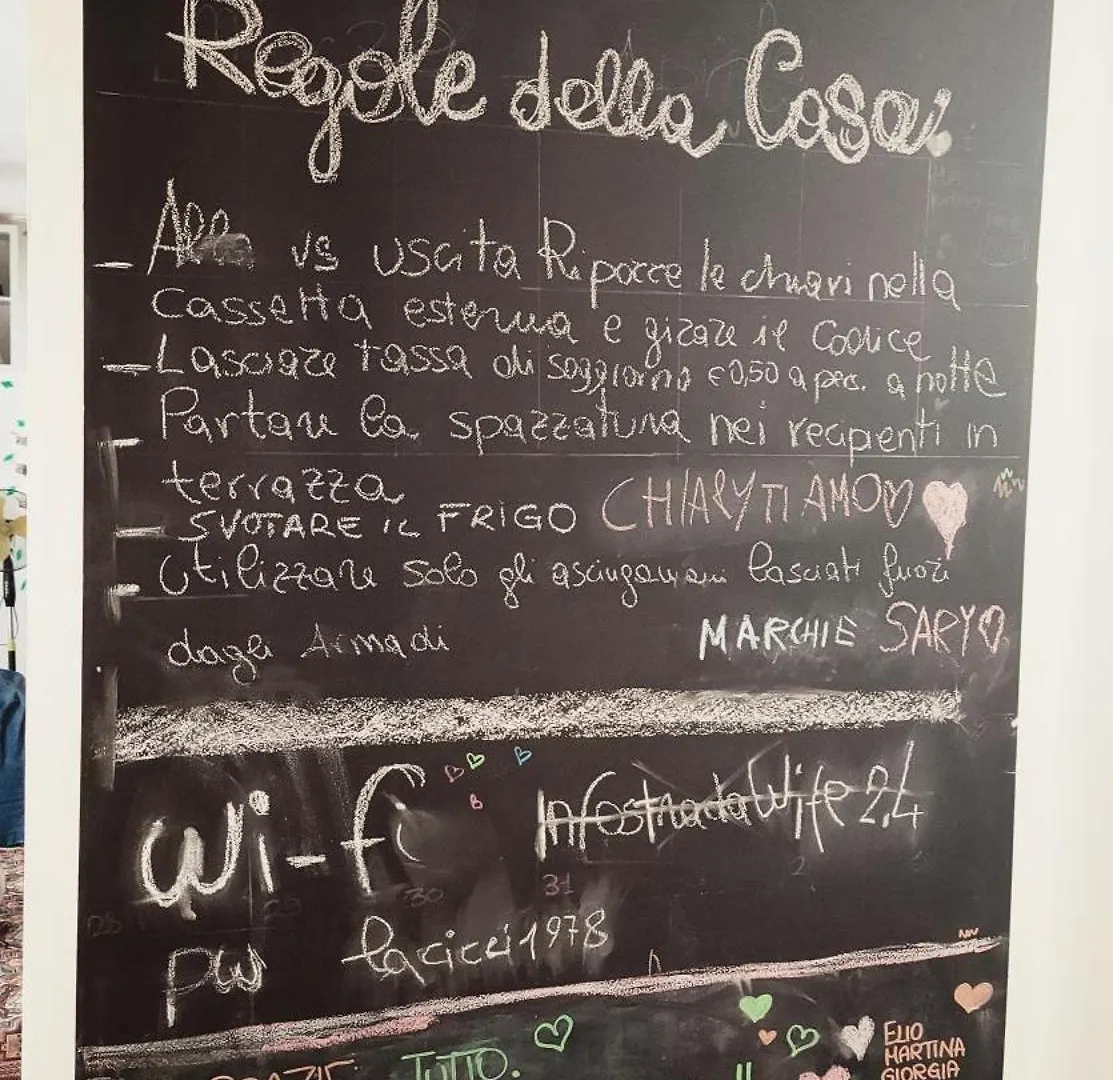 Regole della Casa
- Alla vs uscita Riporre le chiavi nella
cassetta esterna e girare il Codice
- Lasciare tassa di soggiorno €0,50 a pers. a notte
- Portare la spazzatura nei recipenti in
terrazza
CHIARY TI AMO
- SVUOTARE IL FRIGO
- Utilizzare solo gli asciugamani lasciati fuori
dagli Armadi
MARCHIE SARY
Wi-fi InfostradaWife 2.4
28 29 30 31 2
pw lacicci1978
GRAZIE TUTTO.
ELIO
MARTINA
GIORGIA